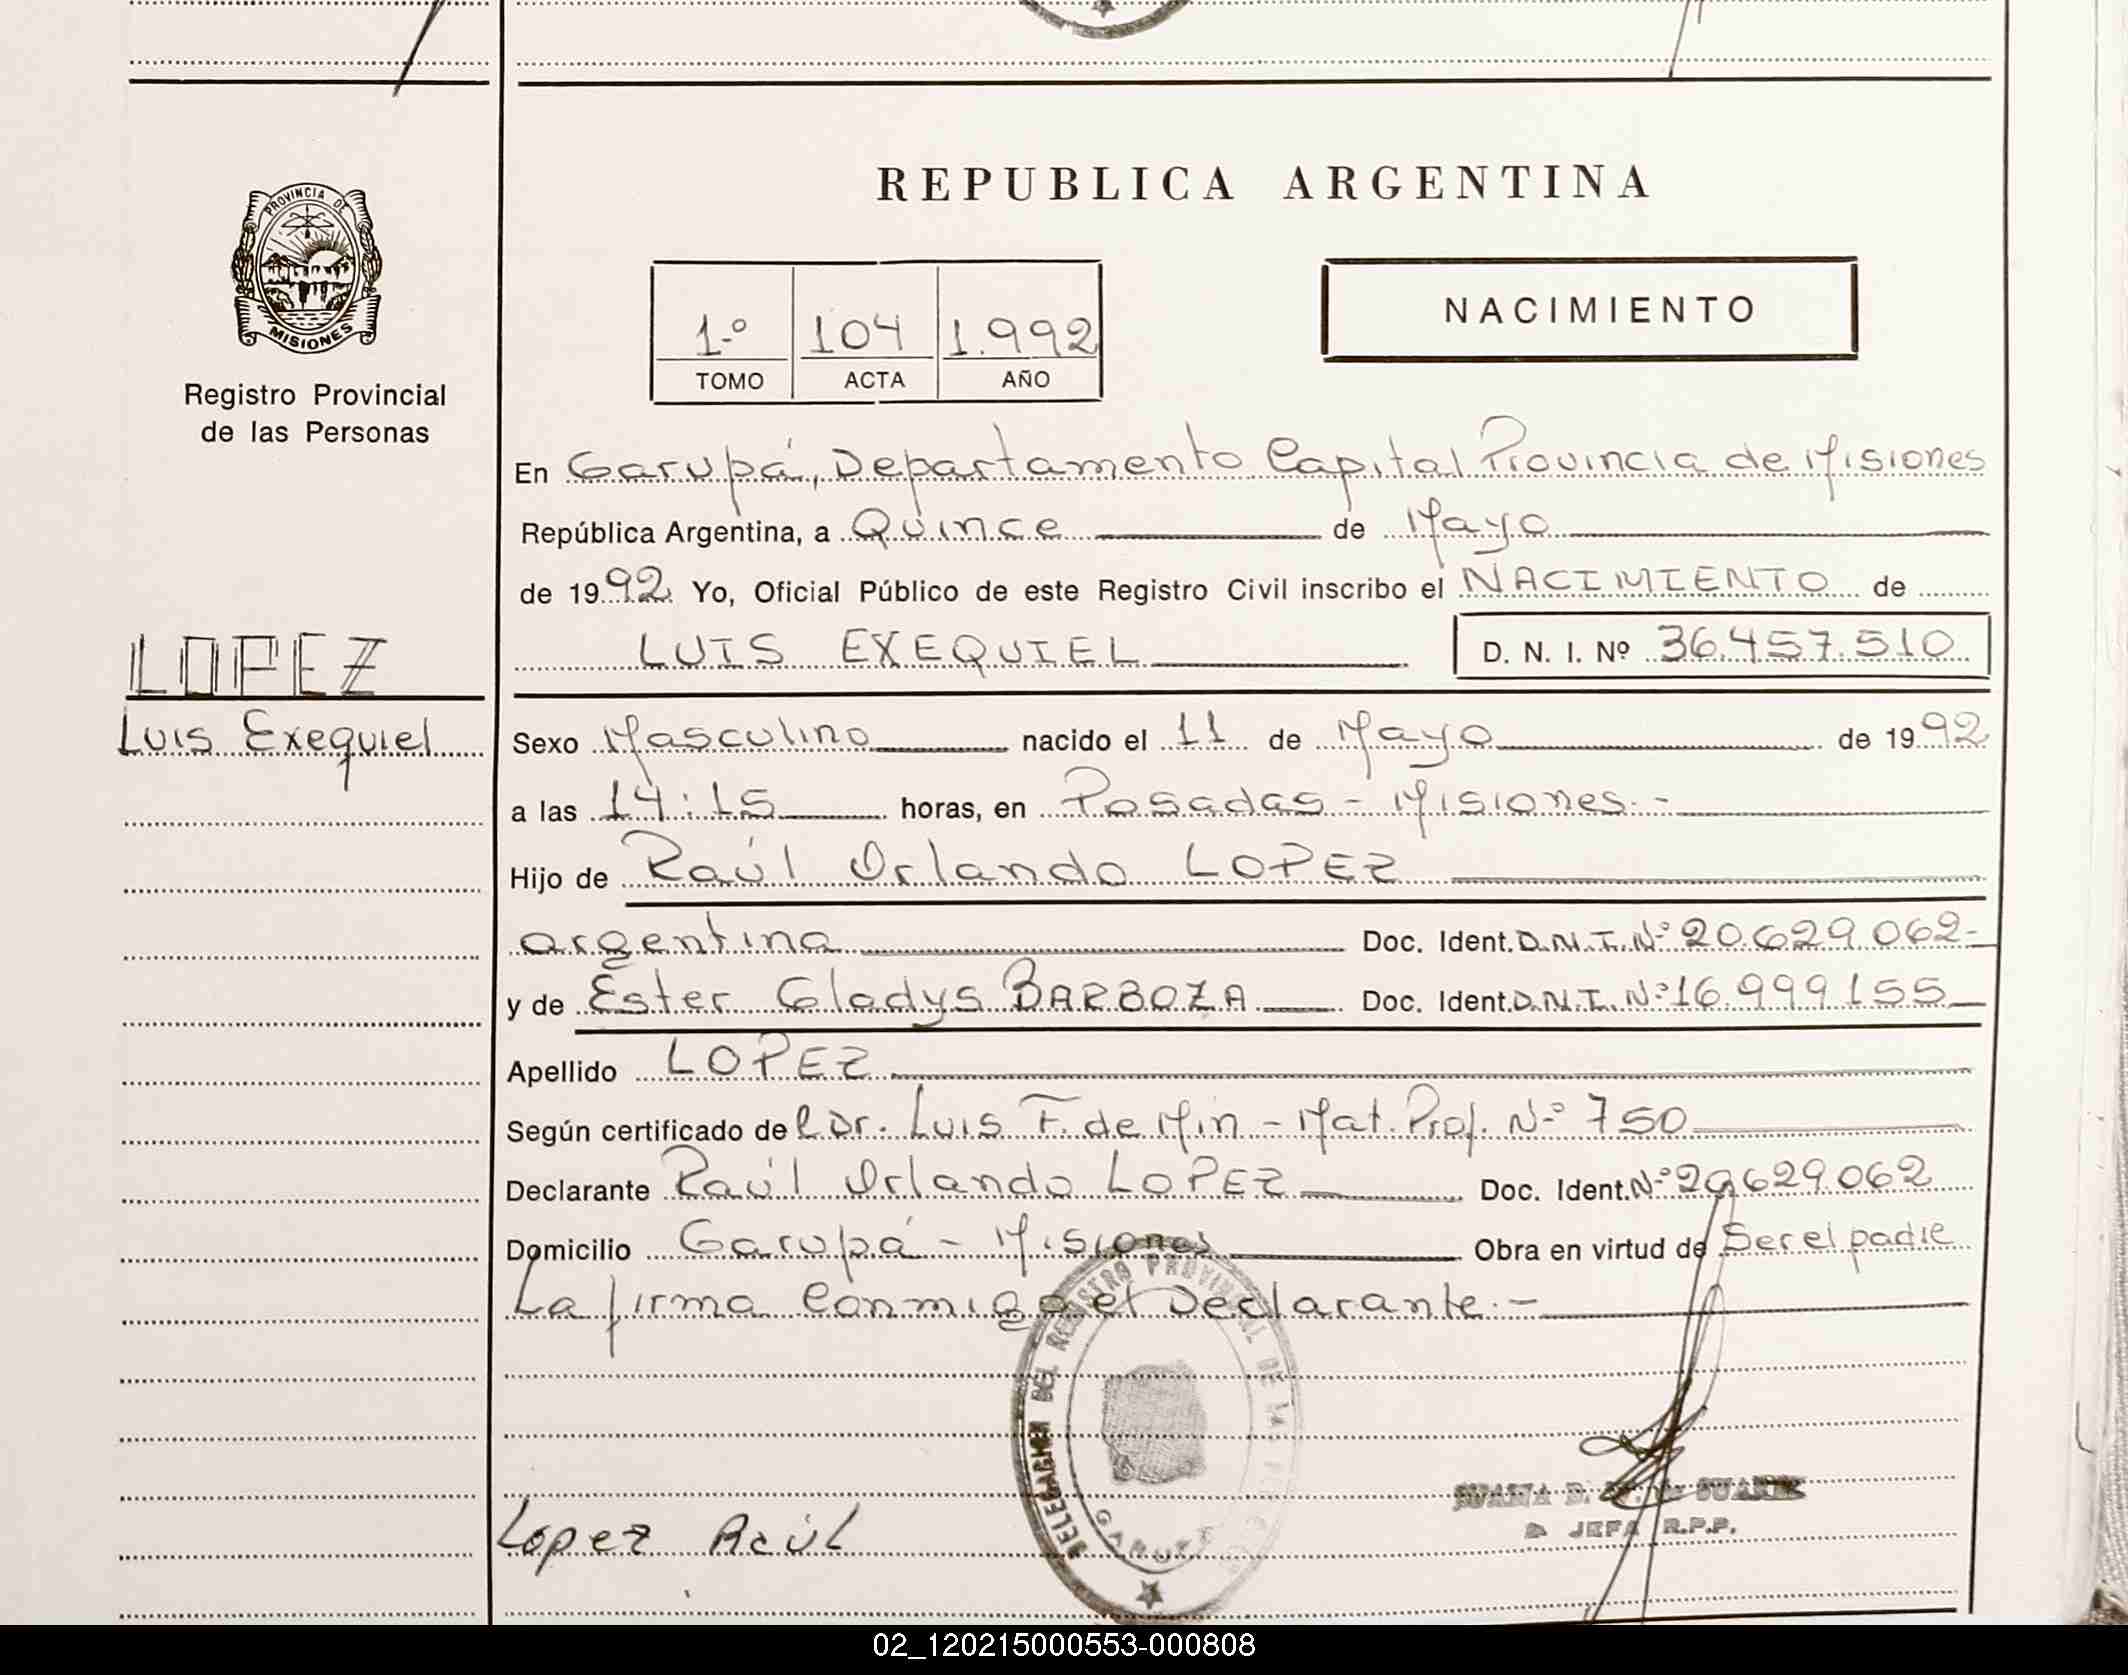 REPUBLICA ARGENTINA
PROVINCIA DE
MISIONES
Registro Provincial
de las Personas
1.º 104 1.992
TOMO ACTA AÑO
NACIMIENTO
En Garupá, Departamento Capital Provincia de Misiones
República Argentina, a Quince de Mayo
de 1992. Yo, Oficial Público de este Registro Civil inscribo el NACIMIENTO de
LUIS EXEQUIEL D. N. I. Nº 36.457.510
LOPEZ
Luis Exequiel
Sexo Masculino nacido el 11 de Mayo de 1992
a las 14:15 horas, en Posadas - Misiones.-
Hijo de Raúl Orlando LOPEZ
argentina Doc. Ident. D.N.I. Nº 20.629.062-
y de Ester Gladys BARBOZA Doc. Ident. D.N.I. Nº 16.999.155
Apellido LOPEZ
Según certificado del Dr. Luis F. de Min - Mat. Prof. Nº 750
Declarante Raúl Orlando LOPEZ Doc. Ident. Nº 20.629.062
Domicilio Garupá - Misiones Obra en virtud de Ser el padre
La firma conmigo el Declarante.-
DEL REGISTRO PROVINCIAL DE LAS
GARUPA
Lopez Raúl
JUANA D. SUAREZ
JEFA R.P.P.
02_120215000553-000808